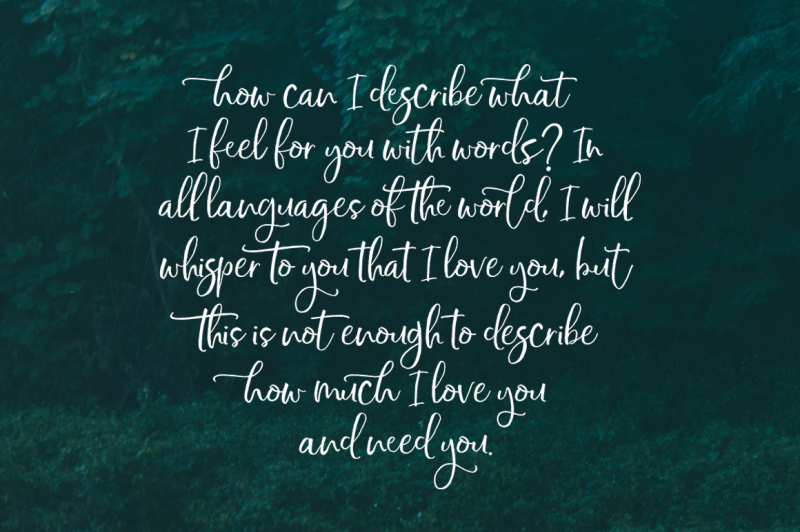 how can I describe what
I feel for you with words? In
all languages of the world, I will
whisper to you that I love you, but
this is not enough to describe
how much I love you
and need you.